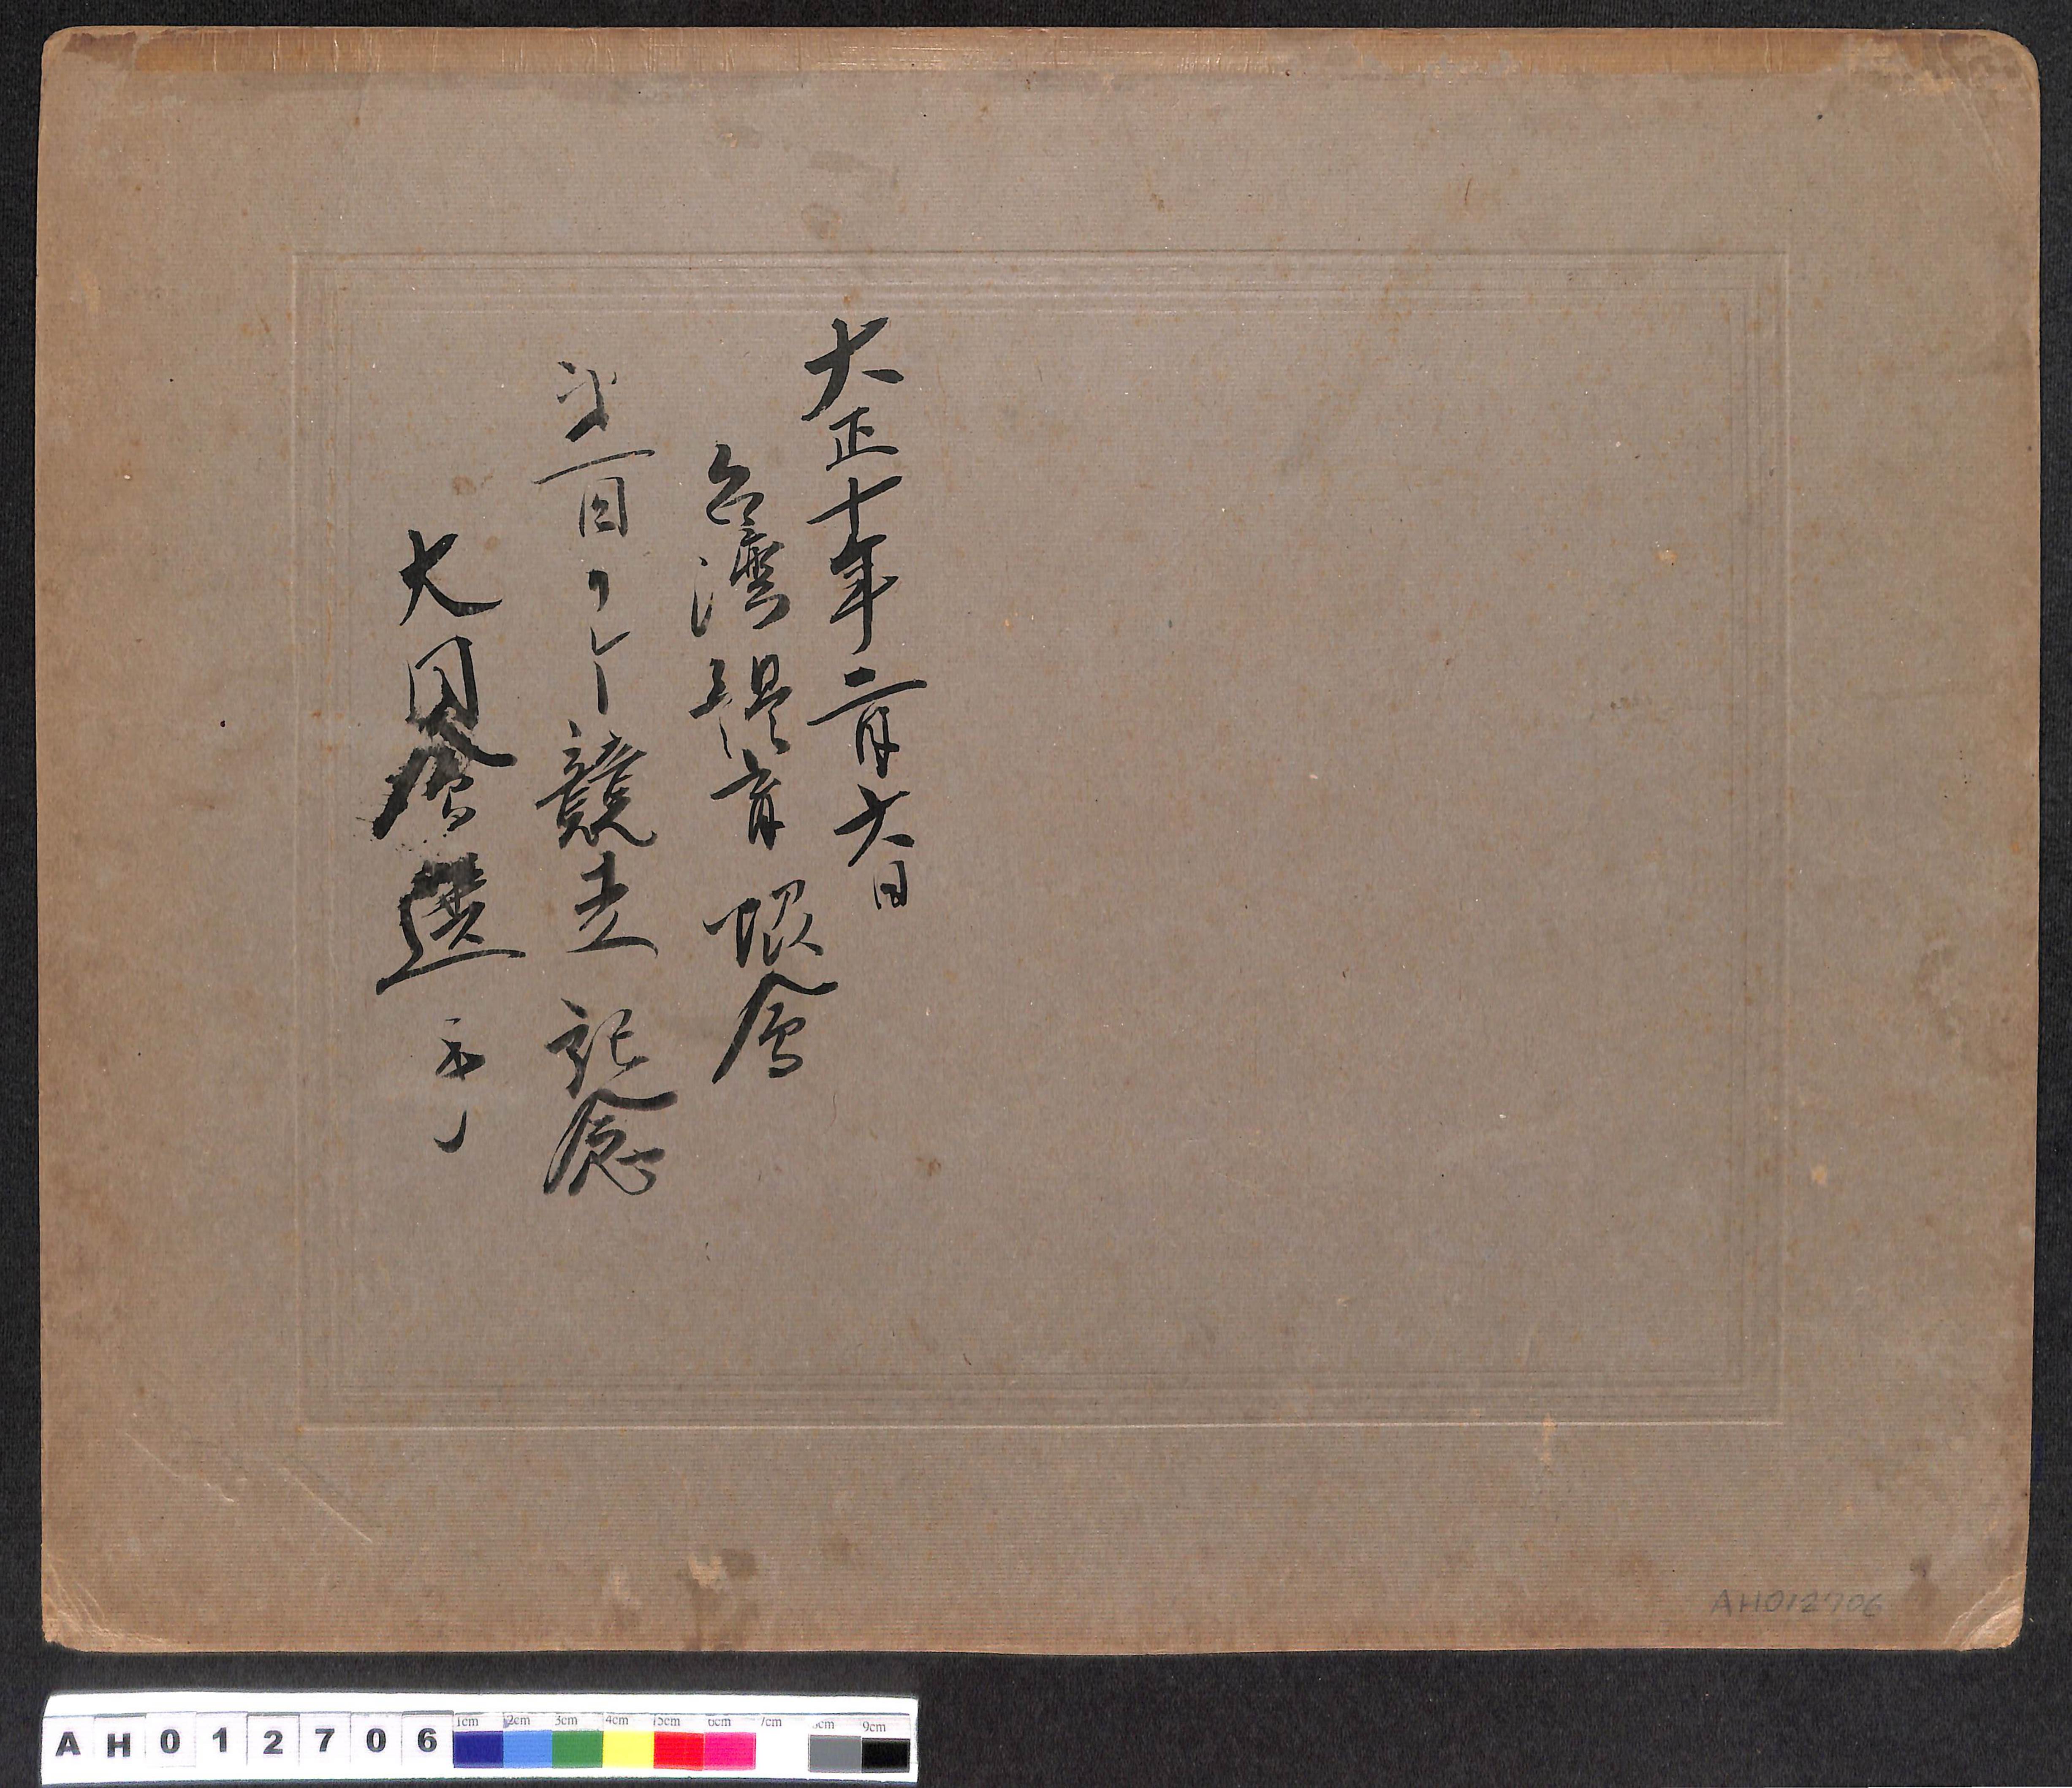 大正十年二月六日
台灣體育協會
第一回リレー競走記念
大同會選手
AH012706
AH012706
1cm 2cm 3cm 4cm 5cm 6cm 7cm 8cm 9cm